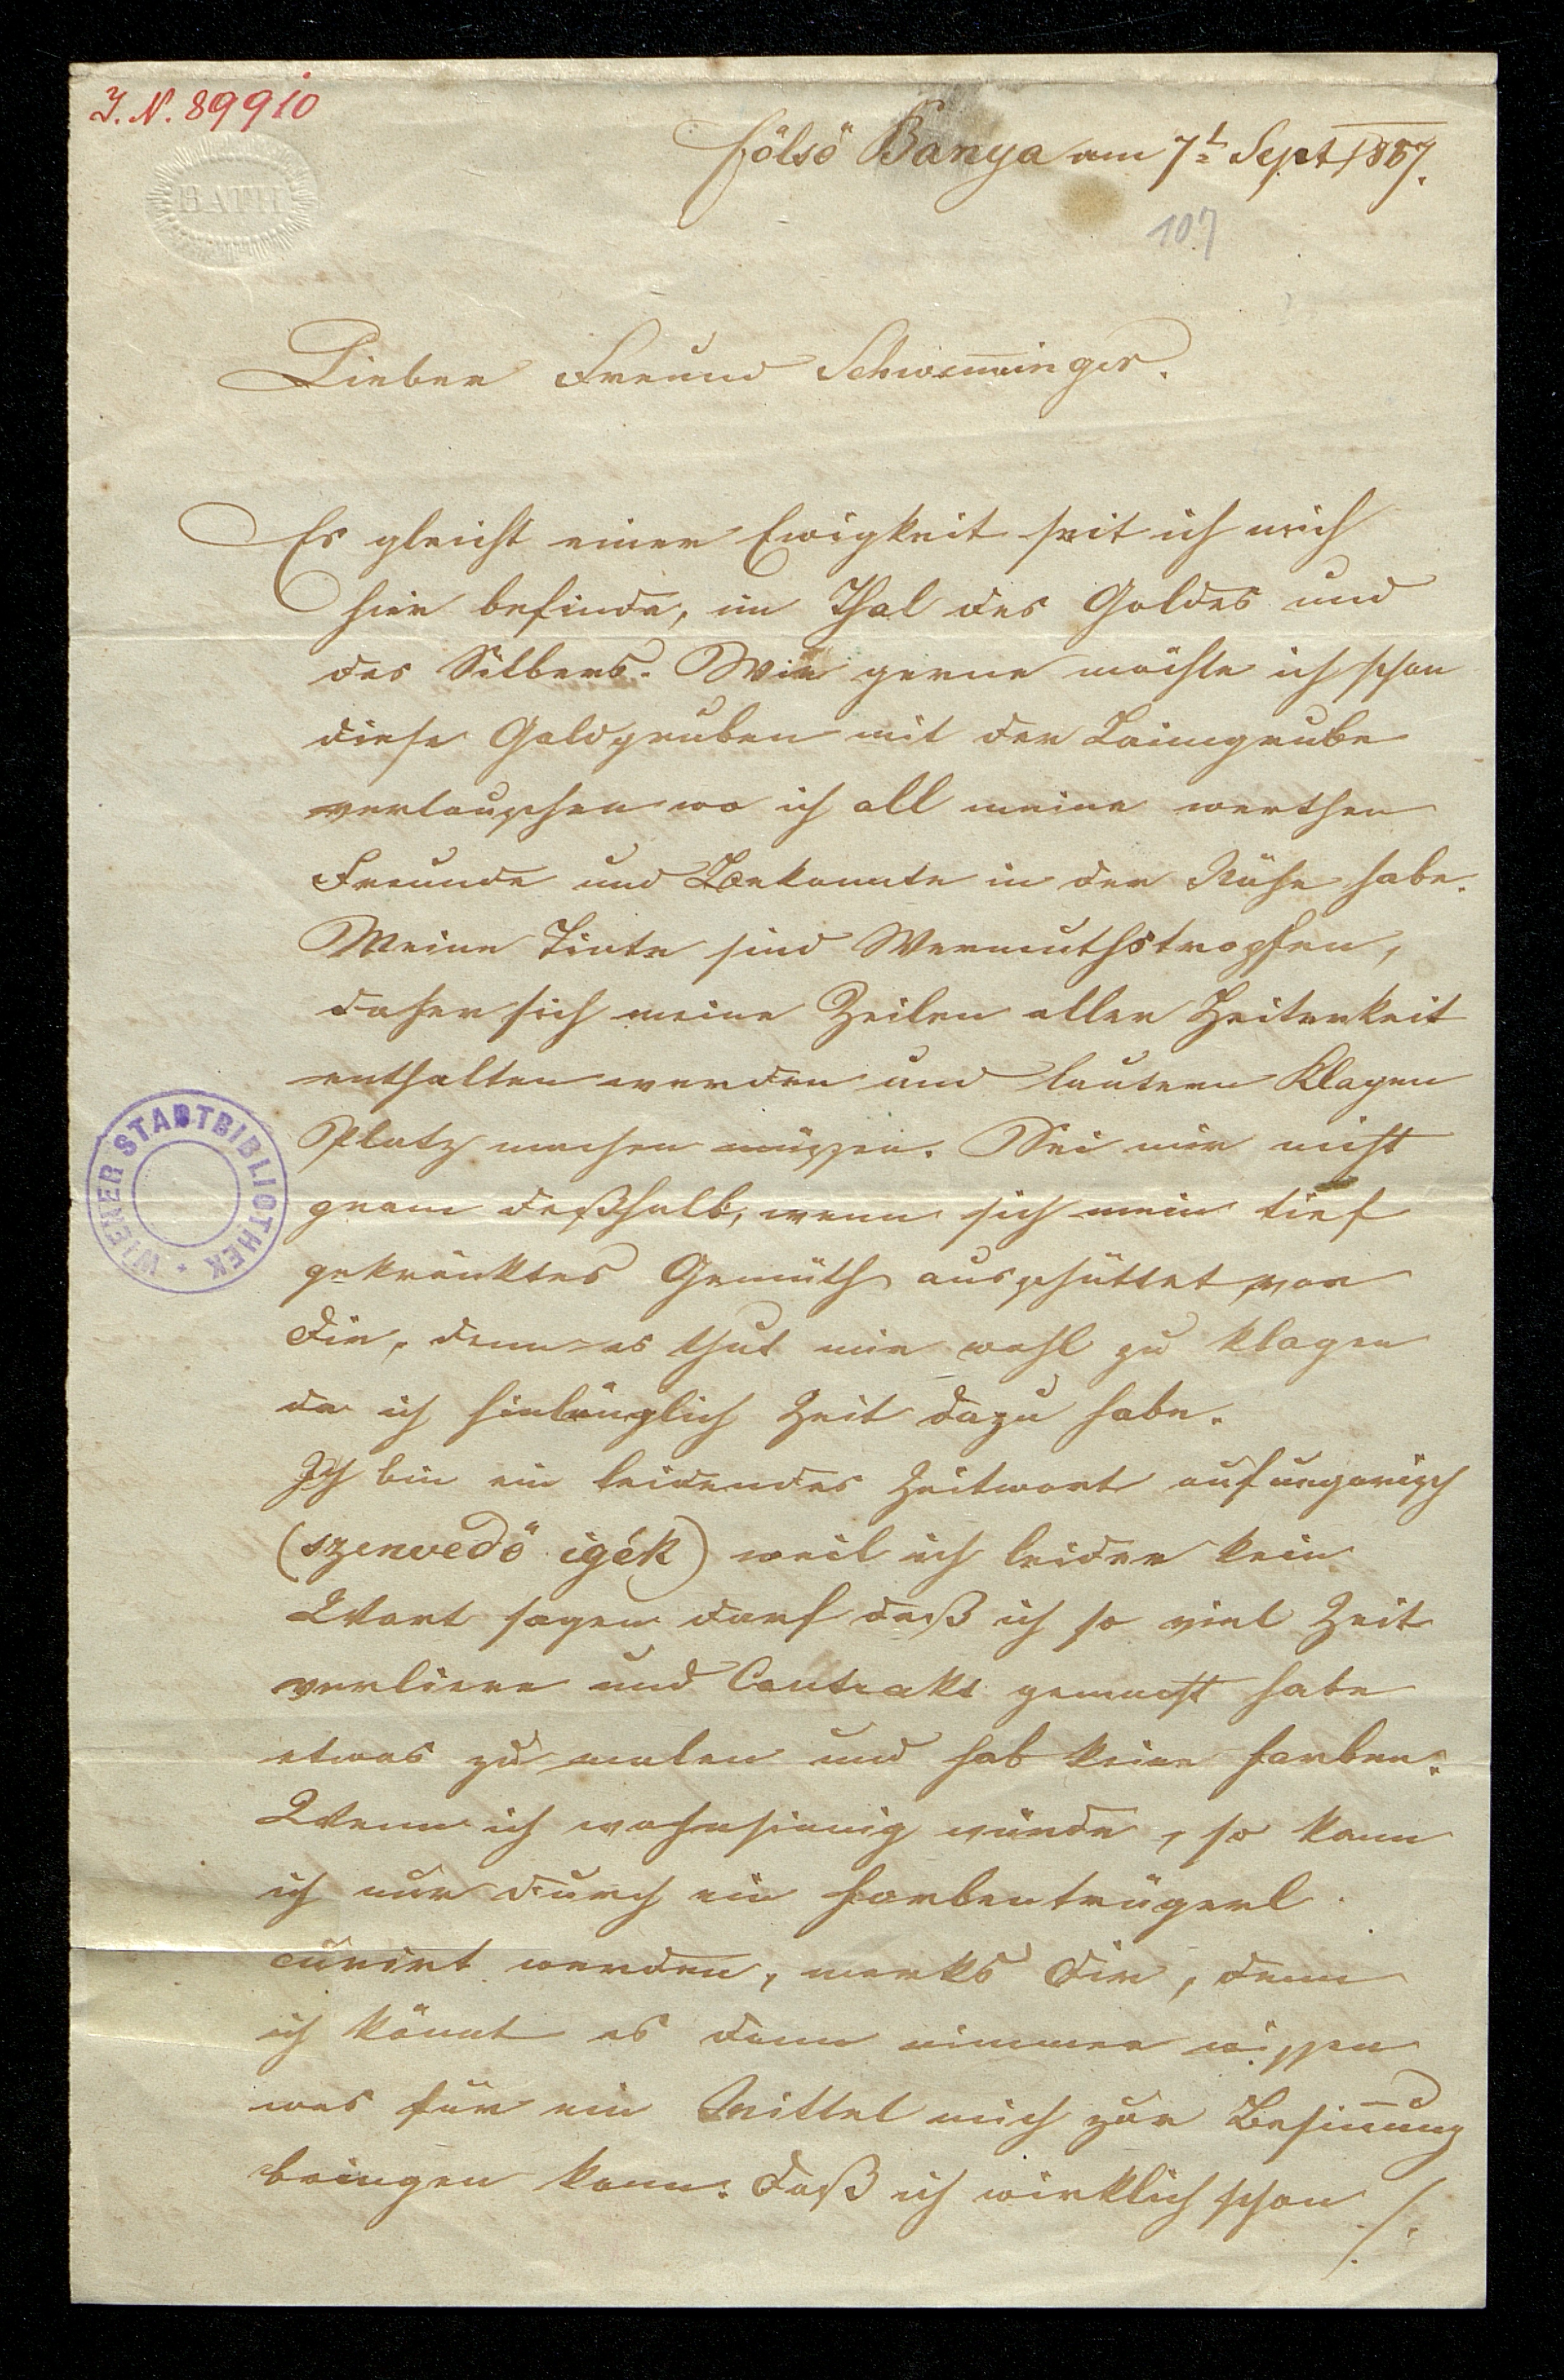 I. N. 89910
BATH
Fölsö Banya am 7t Sept 1857.
107
Lieber Freund Schwem̅inger.
Es gleicht einer Ewigkeit seit ich mich
hier befinde, im Thal des Goldes und
des Silbers. Wie gerne möchte ich schon
diese Goldgruben mit der Laimgrube
vertauschen wo ich all meine werthen
Freunde und Bekannte in der Nähe habe.
Meine Tinte sind Wermuthstropfen,
daher sich meine Zeilen aller Heiterkeit
enthalten werden und lautern Klagen
Platz machen müssen. Sei mir nicht
gram deßhalb, wenn sich mein tief
gekränktes Gemüth ausschüttet vor
Dir, denn es thut mir wohl zu klagen
da ich hinlänglich Zeit dazu habe.
Ich bin ein leidendes Zeitwort auf ungarisch
(szenvedö igék) weil ich leider kein
Wort sagen darf daß ich so viel Zeit
verliere und Contrakt gemacht habe
etwas zu malen und hab keine Farben.
Wenn ich wahnsinnig würde, so kann
ich nur durch ein Farbentrügerl
curirt werden, merks Dir, denn
ich könnt es dann nimmer wissen
was für ein Mittel mich zur Besin̅ung
bringen kann. Daß ich wirklich schon ./.
WIENER STADTBIBLIOTHEK